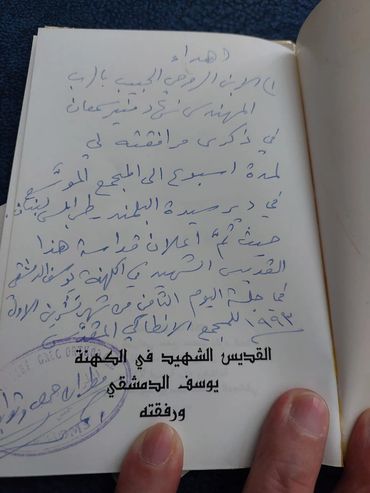 اهداء
الى الابن الروحي الحبيب بالرب
المهندس منير سمعان
في ذكرى مرافقته لي
لمدة اسبوع الى المجمع الموسّع
في دير سيدة البلمند - طرابلس لبنان.
حيث تمّ اعلان قداسة هذا
القديس الشهيد في الكهنة يوسف الدمشقي
في جلسة اليوم الثامن من شهر تشرين الاول
١٩٩٣ للمجمع الانطاكي المقدس
القديس الشهيد في الكهنة
يوسف الدمشقي
ورفقته
مطران حمص